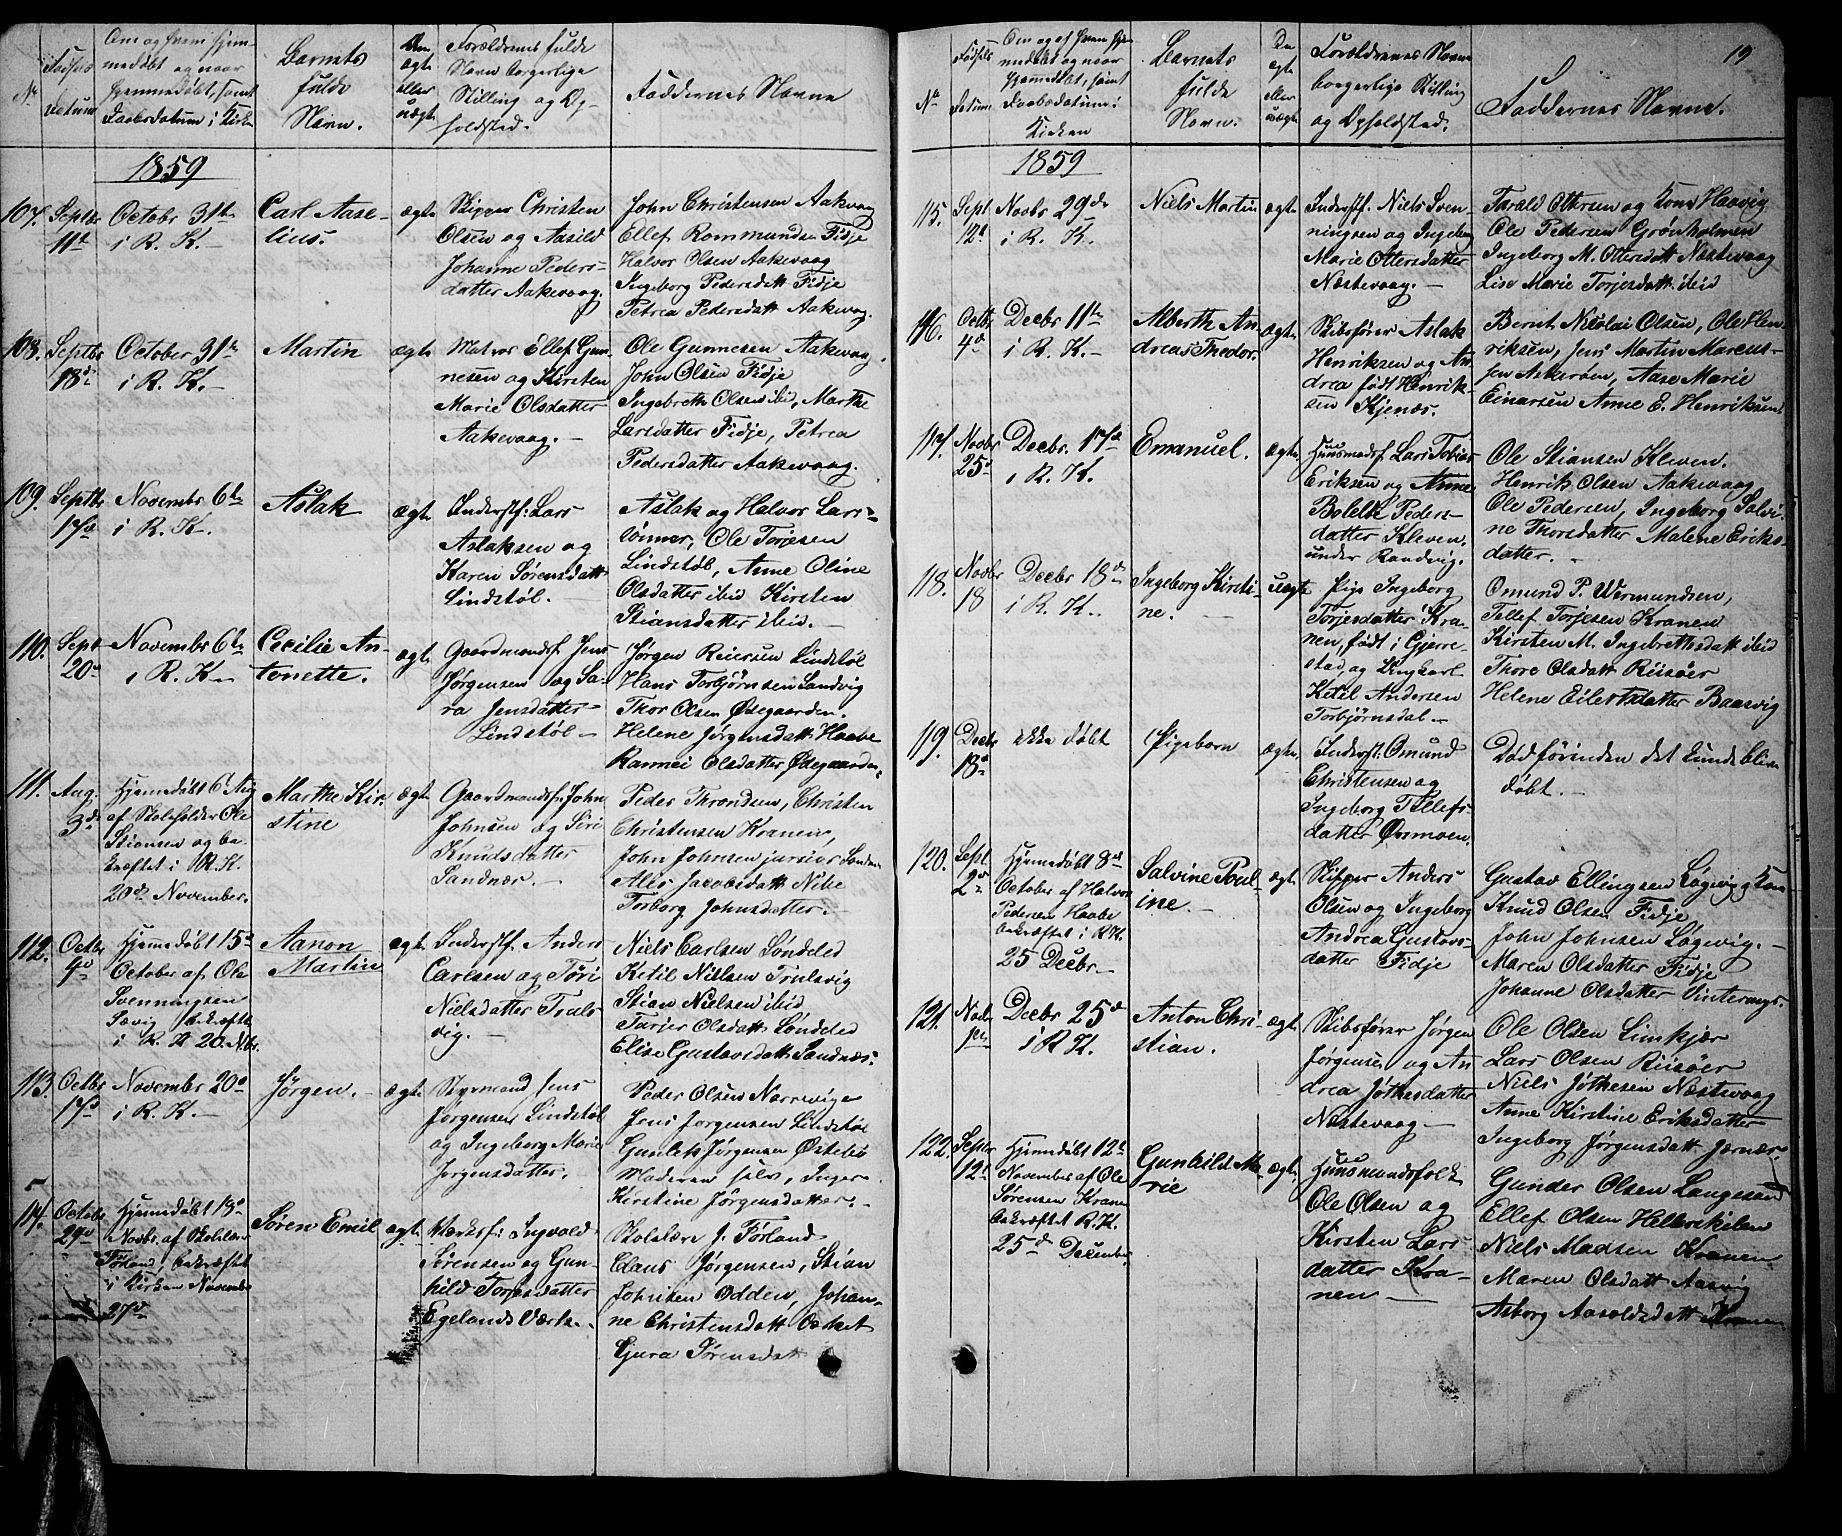 No
Fødsels
Datum
Om og hvem hjem-
medøbt og naar
hjemmedøbt, samt
Daabsdatum i Kirken
Barnets
fulde
Navn.
Om
ægte
eller
uægte
Forældrenes fulde
Navn borgerlige
Stilling og Op-
holdsted.
Faddernes Navne
1859
107.
Septbr
11te
Octobr 31te
i R. K.
Carl Aase-
lius.
ægte
Skipper Christen
Olsen og Aasild
Johanne Peders-
datter Aakevaag.
John Christensen Aakvaag
Ellef Rommundsen Fidje
Halvor Olsen Aakevaag
Ingeborg Pedersdatt Fidje
Petrea Pedersdatt Aakevaag.
108.
Septbr
18de
October 31te
i R. K.
Martin
ægte
Matros Ellef Gun-
nesen og Kirsten
Marie Olsdatter
Aakevaag.
Ole Gunnesen Aakevaag.
John Olsen Fidje
Ingebreth Olsen ibid, Marthe
Larsdatter Fidje, Petrea
Pedersdatter Aakevaag.
109.
Septbr
17de
Novembr 6te
i R. K.
Aslak
ægte
Inderstf: Lars
Aslaksen og
Karen Sørensdatt
Lindstøl.
Aslak og Halvor Lars-
sønner, Ole Torjesen
Lindstøl, Anne Oline
Olsdatter ibid Kirsten
Stiansdatter ibid.
110.
Sept
20de
Novembr 6te
i R. K.
Cecilie An-
tonette.
ægte
Gaardmandsf. Jens
Jørgensen og Sa-
ra Jensdatter
Lindstøl
Jørgen Reiersen Lindstøl
Hans Torbjørnsen Sandvig
Thor Olsen Ødegaarden.
Helene Jørgensdatt Haabe
Rannei Olsdatter Ødegaarden.
111.
Aug.
3de
Hjemmedøbt 6 Aug
af Skoleholder Ole
Stiansen og be-
kræftet i R. K.
20de November.
Marthe Kir-
stine
ægte
Gaardmandsf. John
Johnsen og Siri
Knudsdatter
Sandnæs.
Peder Throndsen, Christen
Christensen Kranen,
John Johnsen junior Sandnæs
Ales Jacobsdatt Nibe
Torborg Johnsdatter.
112.
Octbr
4de
Hjemmedøbt 15de
October af Ole
Svenningsen
Sævig bekræftet
i R. K 20. Nbr.
Aanon
Martin
ægte
Inderstf. Anders
Carlsen og Tøri
Nielsdatter Truls-
vig.
Niels Carlsen Søndeled
Ketil Nielsen Trulsvig
Stian Nielsen ibid
Tarjer Olsdatt Søndeled
Elise Gustavsdatt Sandnæs.
113.
Octbr
17de
Novembr 20de
i R. K.
Jørgen.
ægte
Styrmand Jens
Jørgensen Lindstøl
og Ingeborg Marie
Jørgensdatter.
Peder Olsen Narrevige
Jens Jørgensen Lindstøl
Gunlek Jørgensen Østebø
Moderen selv, Inger
Kirstine Jørgensdatter.
114.
Octobr
29de
Hjemmedøbt 19de
Novbr. af Skolelær.
Førland, bekræftet
i Kirken Novembr
27de
Søren Emil
ægte
Værksf: Ingvald
Sørensen og Gun-
hild Torjesdatter
Egelands Værk.
Skolelære J. Førland
Claus Jørgensen, Stian
Johnsen Odden, Johan-
ne Christensdatt Værket
Gjura Sørensdatt
19
No
Fødsels
Datum
Om og af hvem hjem
medøbt og naar
hjemmedøbt, samt
Daabsdatum i
Kirken
Barnets
fulde
Navn.
Om
ægte
eller
uægte
Forældrenes Navne
borgerlige Stilling
og Opholdsted.
Faddernes Navne.
1859
115.
Sept
12te
Novbr 29de
i R. K.
Niels Martin
ægte
Inderstf. Niels Sven-
ningsen og Ingeborg
Marie Ottersdatter
Næstevaag.
Tarald Ottersen og Kone Haavig
Ole Pedersen Grønholmen
Ingeborg M. Ottersdatt Næstevaag
Lise Marie Torjesdatt. ibid
116.
Octbr
4de
Decbr 11te
i R. K.
Alberth An-
dreas Theodor.
ægte
Skibsfører Aslak
Henriksen og An-
drea født Henrik-
sen Kjenæs.
Bernt Nicolai Olsen, Ole Hen-
riksen, Jens Martin Marcus-
sen Askerøen, Aase Marie
Einarsen Anne E. Henriksen
117.
Novbr
25de
Decbr. 17de
i R. K.
Emanuel.
ægte
Huusmandsf. Lars Tobias
Eriksen og Anne
Bolette Peders-
datter Kleven,
under Randvig.
Ole Stiansen Kleven.
Henrik Olsen Aakevaag
Ole Pedersen, Ingeborg Salvi-
ne Thorsdatter Malene Eriks-
datter.
118.
Novbr
18
Decbr 18de
i R. K.
Ingeborg Kirsti-
ne.
uægte
Pige Ingeborg
Torjesdatter Kra-
nen, født i Gjerre-
stad, og Ungkarl
Ketil Andersen
Torbjørnsdal.
Omund P. Wermundsen,
Tellef Torjesen Kranen
Kirsten M. Ingebrethsdatt ibid
Thore Olsdatt Riisøer
Helene Eilertsdatter Baasvig
119.
Decbr
18de
ikke døbt
Pigebarn
ægte
Inderstf: Omund
Christensen og
Ingeborg Tellefs-
datter Øvrmoen.
Død førinden det kunde blive
døbt.
120.
Sept
2de
Hjemmedøbt 8de
October af Halvor
Pedersen Haabe
bekræftet i R K.
25 Decbr.
Salvine Poul-
ine.
ægte
Skipper Anders
Olsen og Ingeborg
Andrea Gustavs-
datter Fidje
Gustav Ellingsen Løgevig g Kone
Knud Olsen Fidje
John Johnsen Løgevig.
Maren Olsdatter Fidje
Johanne Olsdatter Vinterangr.
121.
Novbr
Decbr 25de
i R K.
Anton Chri-
stian.
ægte
Skibsfører Jørgen
Jørgensen og An-
drea Jøthesdatter
Næstevaag
Ole Olsen Limkjær
Lars Olsen Riisøer
Niels Jøthesen Næstevaag
Anne Kirstine Eriksdatter
Ingeborg Jørgensdatt. Jernæs.
122.
Septbr
12te
Hjemmedøbt 12te
November af Ole
Sørensen Kranen
bekræftet R. K.
25de December
Gunhild Ma-
rie
ægte
Huusmandsfolk
Ole Olsen og
Kirsten Lars-
datter Kra-
nen
Gunder Olsen Langesand
Ellef Olsen Hellerskilen
Niels Madsen Kranen.
Maren Olsdatt Aasvig
Asborg Aasoldsdatt Kranen